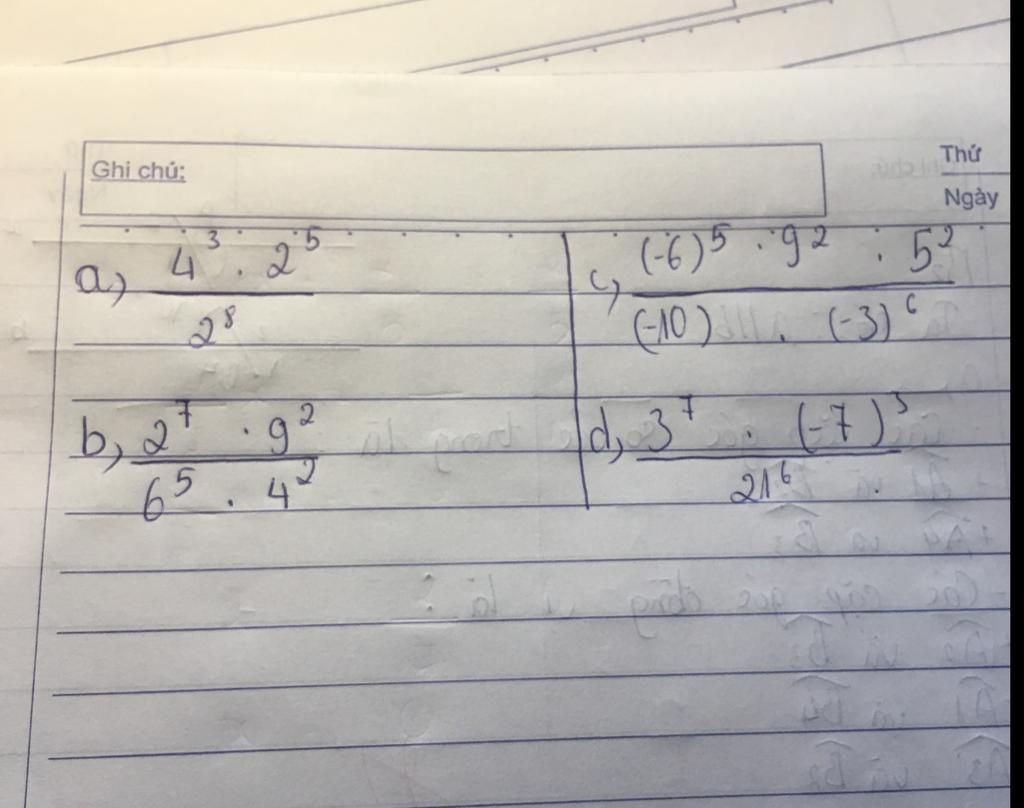 Ghi chú:
Thứ
Ngày
a) \frac{4^3 . 2^5}{2^8}
c) \frac{(-6)^5 . 9^2 . 5^2}{(-10) . (-3)^6}
b) \frac{2^7 . 9^2}{6^5 . 4^2}
d) \frac{3^7 . (-7)^3}{21^6}